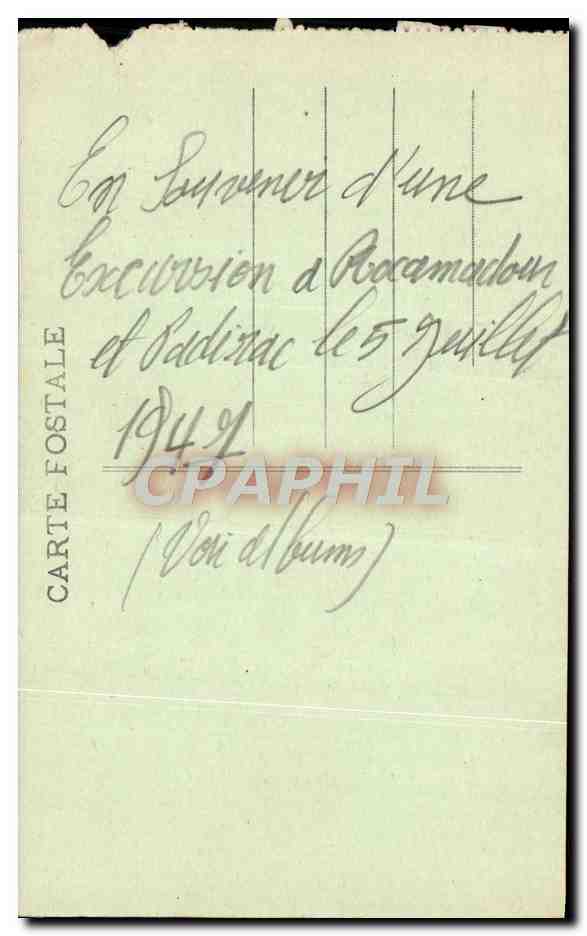 En Souvenir d'une
Excursion a Rocamadour
et Padirac le 5 Juillet
1947
CPAPHIL
(Voir albums)
CARTE POSTALE